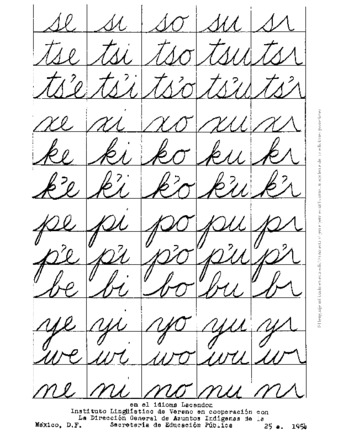 se si so su sɨ
tse tsi tso tsu tsɨ
ts'e ts'i ts'o ts'u ts'ɨ
xe xi xo xu xɨ
ke ki ko ku kɨ
k'e k'i k'o k'u k'ɨ
pe pi po pu pɨ
p'e p'i p'o p'u p'ɨ
be bi bo bu bɨ
ye yi yo yu yɨ
we wi wo wu wɨ
ne ni no nu nɨ
en el idioma Lacandon
Instituto Lingüístico de Verano en cooperación con
La Dirección General de Asuntos Indígenas de la
México, D.F. Secretaría de Educación Pública 25 e. 1954